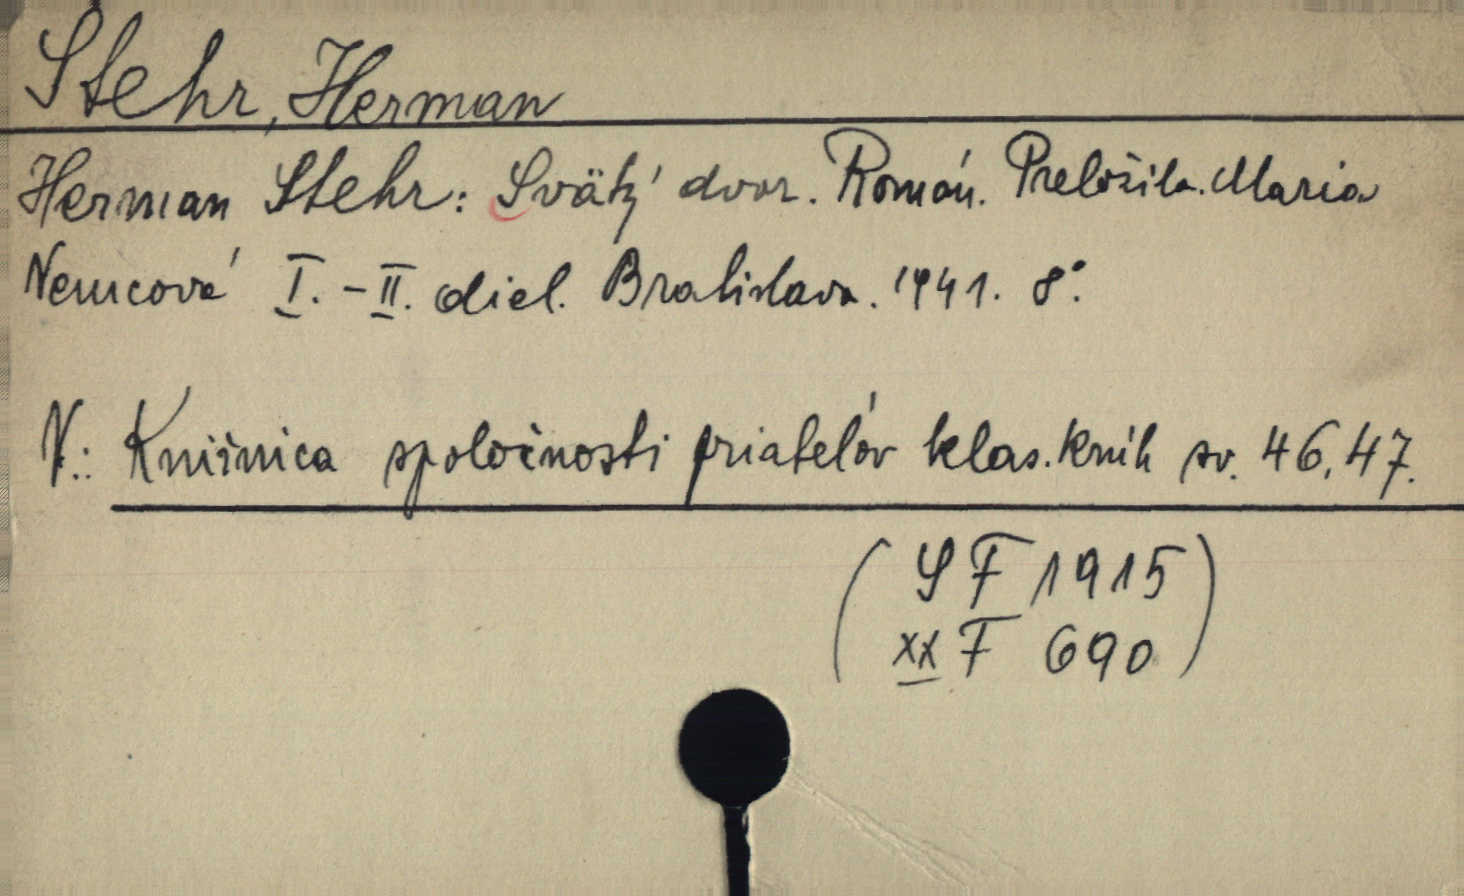 Stehr, Herman
Herman Stehr: Svätý dvor. Román. Preložila. Maria
Nemcová I. - II. diel. Bratislava. 1941. 8°.
V.: Knižnica spoločnosti priateľov klas. kníh sv. 46, 47.
( SF 1915 )
( XX F 690 )